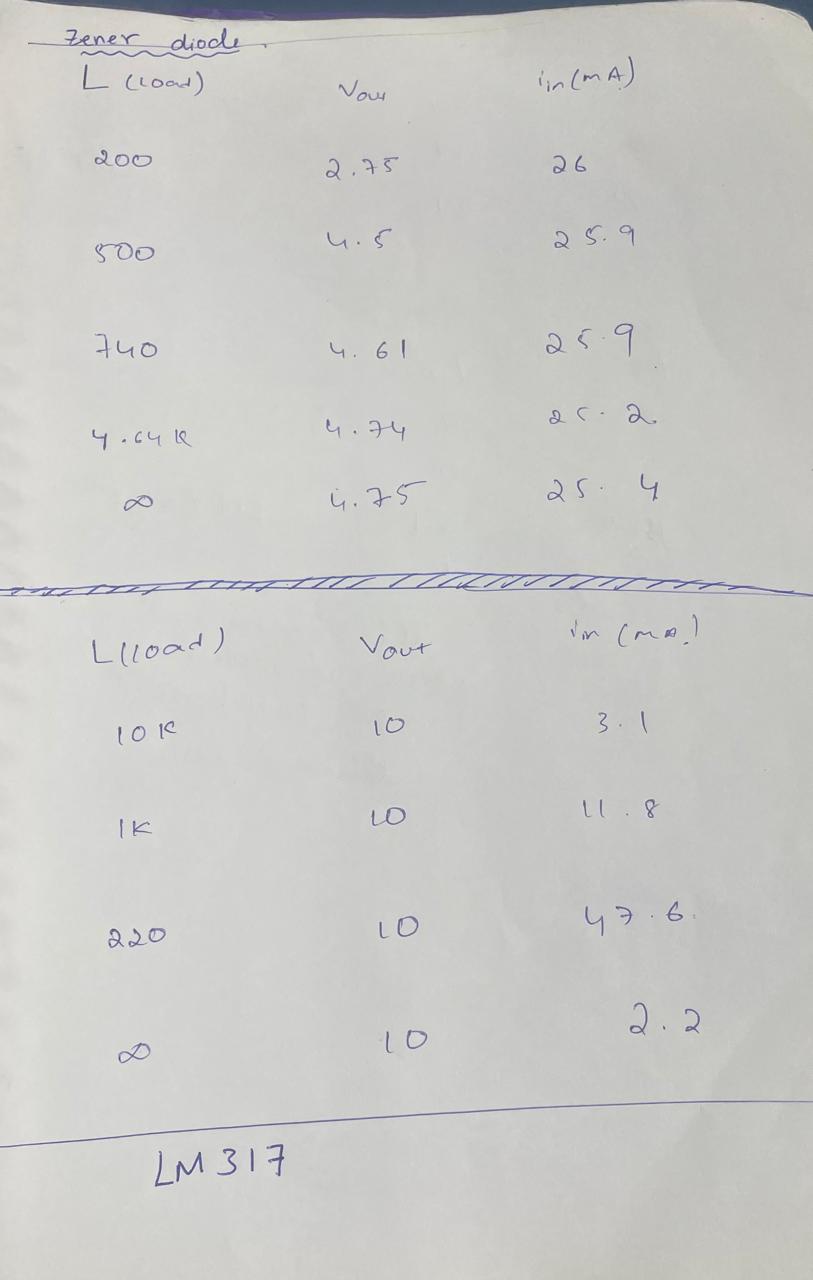 Zener diode.
L (load) Vout iin (mA)
200 2.75 26
500 4.5 25.9
740 4.61 25.9
4.64K 4.74 25.2
∞ 4.75 25.4
L(load) Vout iin (mA)
10K 10 3.1
1K 10 11.8
220 10 47.6
∞ 10 2.2
LM317